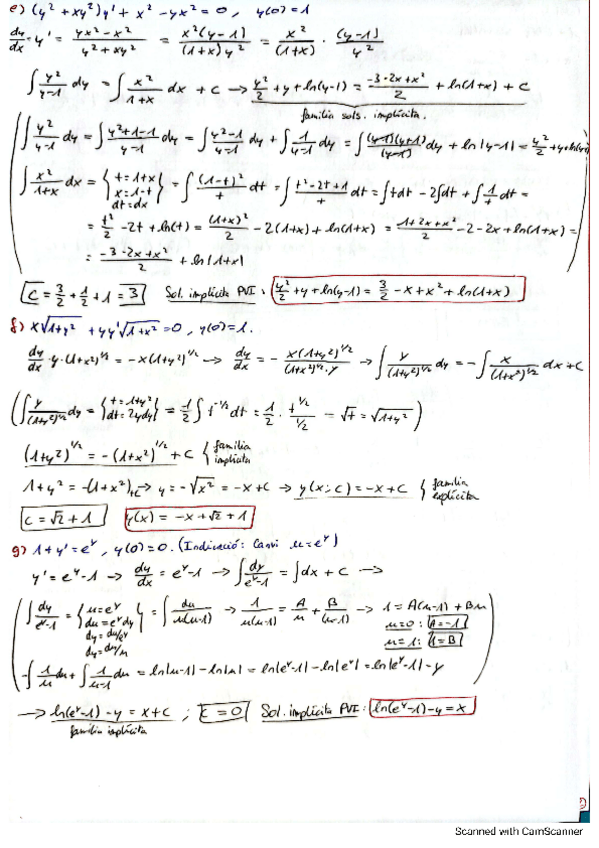 e) (y² + xy²)y' + x² - yx² = 0, y(0) = 1
dy/dx = y' = (yx² - x²)/(y² + xy²) = x²(y-1)/((1+x)y²) = x²/(1+x) · (y-1)/y²
∫ y²/(y-1) dy = ∫ x²/(1+x) dx + C → y²/2 + y + ln(y-1) = (-3-2x+x²)/2 + ln(1+x) + C
familia sols. implícita.
(∫ y²/(y-1) dy = ∫ (y²+1-1)/(y-1) dy = ∫ (y²-1)/(y-1) dy + ∫ 1/(y-1) dy = ∫ (y-1)(y+1)/(y-1) dy + ln|y-1| = y²/2 + y + ln|y-1|
∫ x²/(1+x) dx = { t=1+x x=1-t dt=dx } = ∫ (1-t)²/t dt = ∫ (t²-2t+1)/t dt = ∫ t dt - 2∫ dt + ∫ 1/t dt =
= t²/2 - 2t + ln(t) = (1+x)²/2 - 2(1+x) + ln(1+x) = (1+2x+x²)/2 - 2 - 2x + ln(1+x) =
= (-3-2x+x²)/2 + ln|1+x| )
C = 3/2 + 1/2 + 1 = 3 Sol. implícita PVI: y²/2 + y + ln(y-1) = 3/2 - x + x² + ln(1+x)
f) x√1+y² + yy'√1+x² = 0, y(0) = 1.
dy/dx · y · (1+x²)^1/2 = -x(1+y²)^1/2 → dy/dx = - x(1+y²)^1/2 / ((1+x²)^1/2 · y) → ∫ y/(1+y²)^1/2 dy = -∫ x/(1+x²)^1/2 dx + C
(∫ y/(1+y²)^1/2 dy = { t=1+y² dt=2ydy } = 1/2 ∫ t^-1/2 dt = 1/2 · t^1/2 / 1/2 - √t = √1+y² )
(1+y²)^1/2 = -(1+x²)^1/2 + C { familia implícita
1+y² = -(1+x²)+C → y = -√x² = -x + C → y(x;c) = -x + C { familia explícita
C = √2 + 1 y(x) = -x + √2 + 1
g) 1 + y' = e^y, y(0) = 0. (Indicació: Canvi u = e^y)
y' = e^y - 1 → dy/dx = e^y - 1 → ∫ dy/(e^y-1) = ∫ dx + C →
(∫ dy/(e^y-1) = { u=e^y du=e^y dy dy=du/e^y dy=du/u } = ∫ du/(u(u-1)) → 1/(u(u-1)) = A/u + B/(u-1) → 1 = A(u-1) + Bu
u=0: A=-1
u=1: 1=B
-∫ 1/u du + ∫ 1/(u-1) du = ln|u-1| - ln|u| = ln|e^y-1| - ln|e^y| = ln|e^y-1| - y )
→ ln(e^y-1) - y = x + C ; C = 0 Sol. implícita PVI: ln(e^y-1) - y = x
familia implícita
Scanned with CamScanner